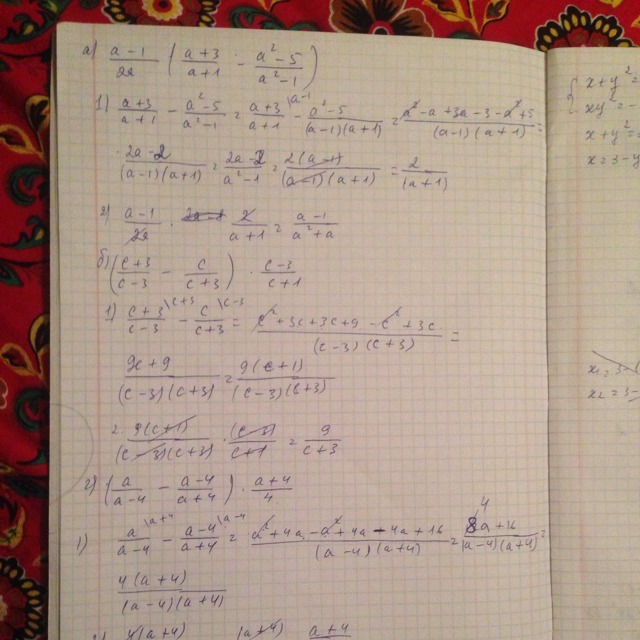 а) (a-1)/(2a) ( (a+3)/(a+1) - (a²-5)/(a²-1) )
1) (a+3)/(a+1) - (a²-5)/(a²-1) = (a+3)/(a+1) \a-1 - (a²-5)/((a-1)(a+1)) = (a²-a+3a-3-a²+5)/((a-1)(a+1)) =
(2a-2)/((a-1)(a+1)) = (2a-2)/(a²-1) = (2(a-1))/((a-1)(a+1)) = 2/(a+1)
2) (a-1)/(2a) · 2/(a+1) = (a-1)/(a²+a)
б) ( (c+3)/(c-3) - c/(c+3) ) · (c-3)/(c+1)
1) (c+3)/(c-3) \c+3 - c/(c+3) \c-3 = (c²+3c+3c+9-c²+3c)/((c-3)(c+3)) =
(9c+9)/((c-3)(c+3)) = (9(c+1))/((c-3)(c+3))
2. (9(c+1))/((c-3)(c+3)) · (c-3)/(c+1) = 9/(c+3)
г) ( a/(a-4) - (a-4)/(a+4) ) · (a+4)/4
1) a/(a-4) \a+4 - (a-4)/(a+4) \a-4 = (a²+4a-a²+4a-4a+16)/((a-4)(a+4)) = (4a+16)/((a-4)(a+4)) =
(4(a+4))/((a-4)(a+4))
4(a+4) (a+4) a+4
{ x+y²=
xy²=-
x+y²=
x=3-y
x₁=3-
x₂=3-